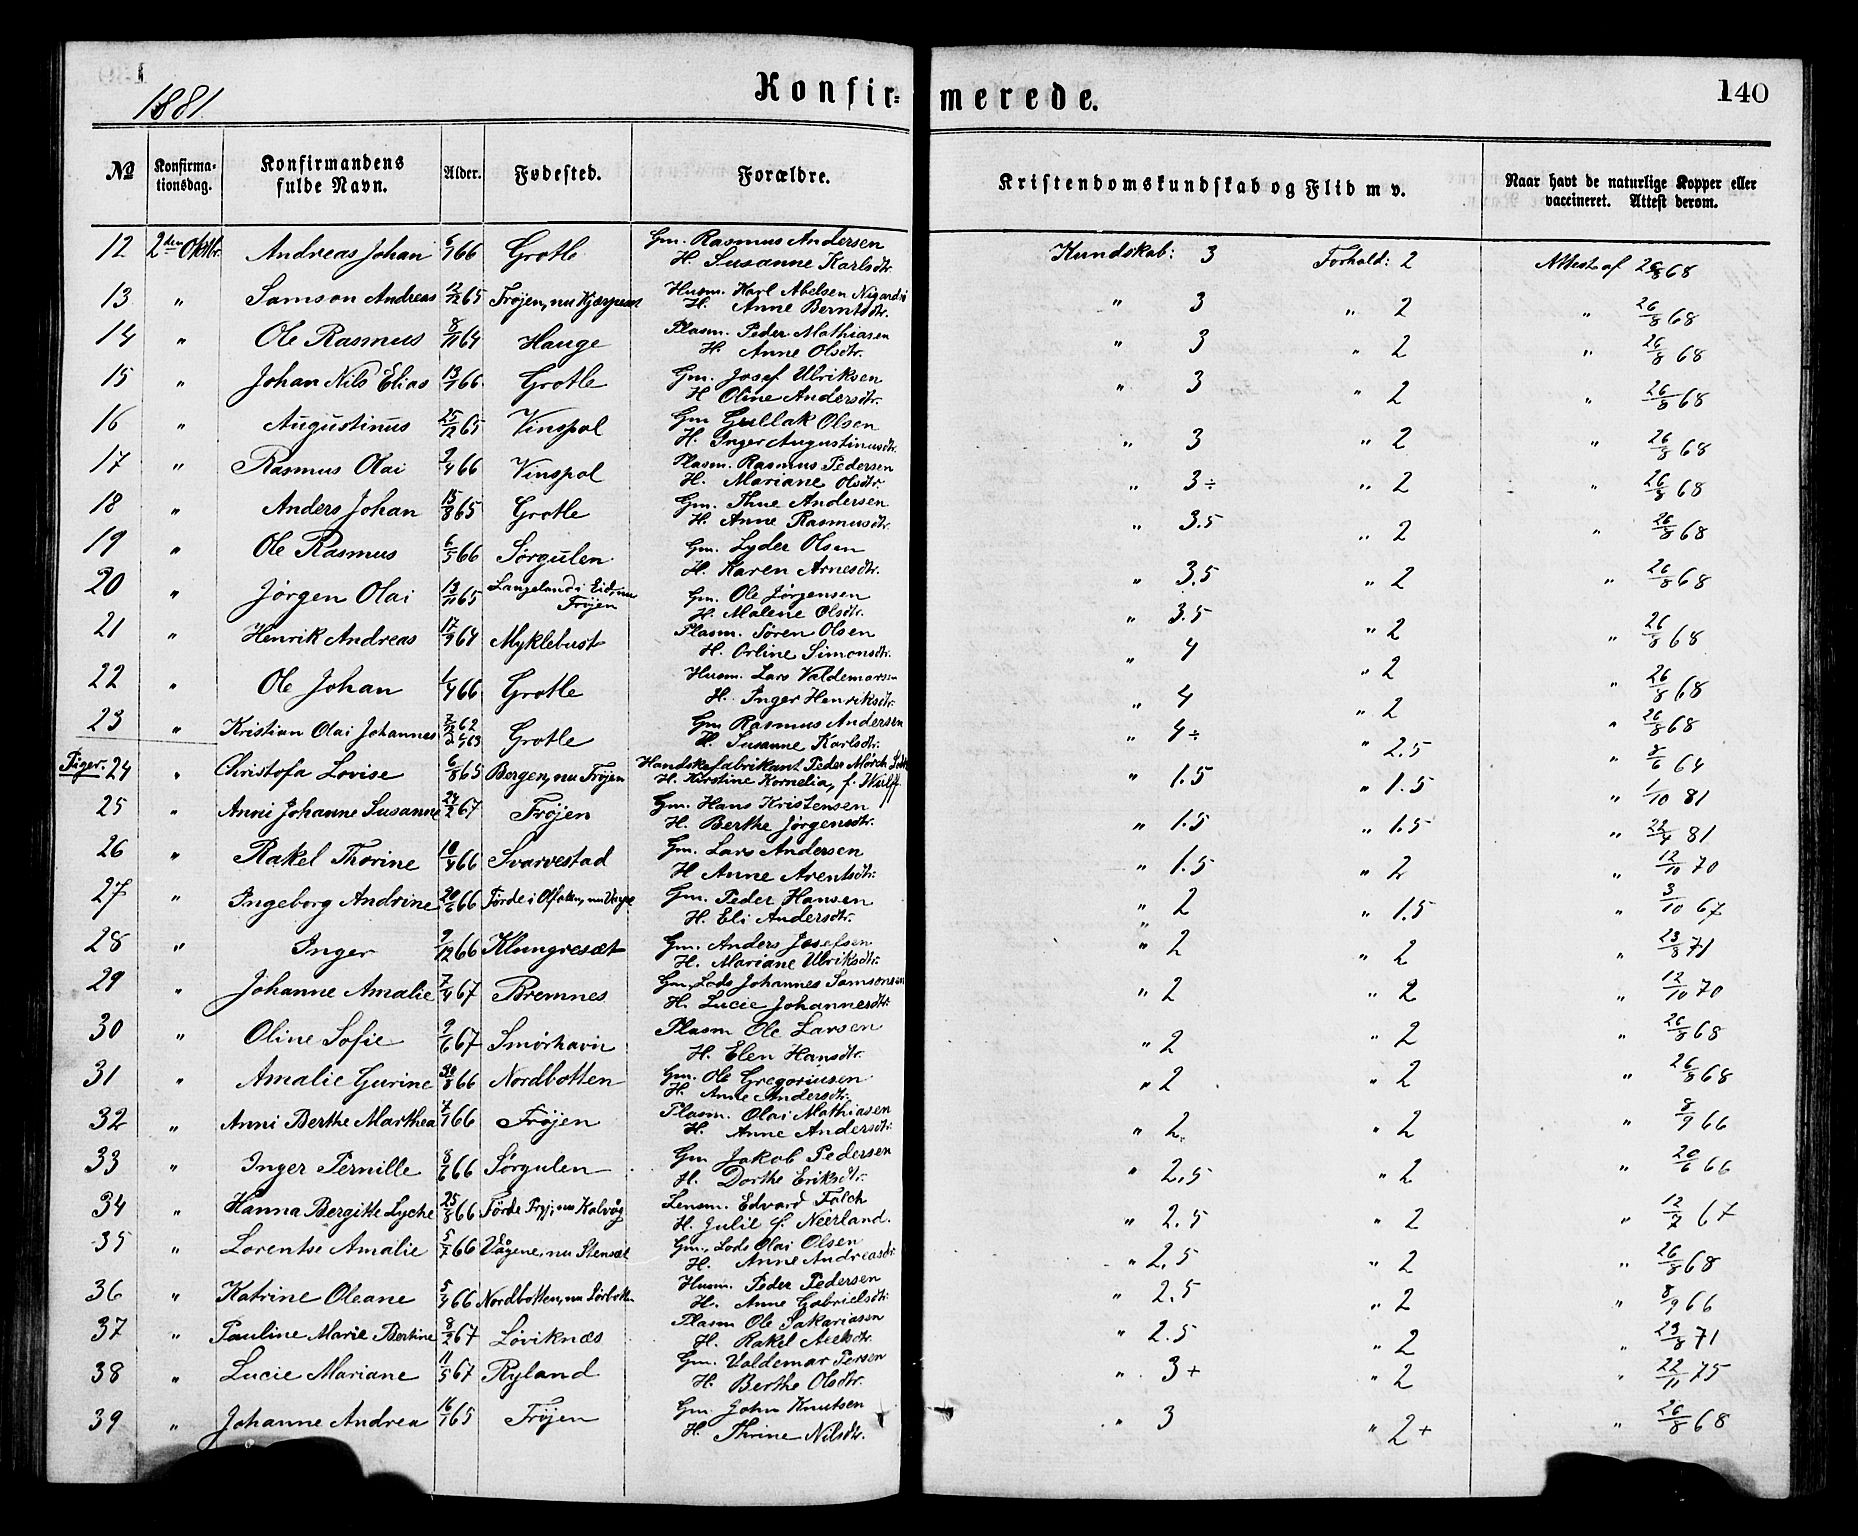 1881.
Konfir-
merede.
140
No
Konfirma-tionsdag.
Konfirmandens fulde Navn.
Alder.
Fødested.
Forældre.
Kristendomskundskab og Flid m v.
Naar havt de naturlige Kopper eller vaccineret. Attest derom.
12 2den Oktbr. Andreas Johan 6/1 66 Grotle Gm. Rasmus Andersen H. Susanne Karlsdtr. Kundskab: 3 Forhold: 2 Attest af 26/8 68
13 " Samson Andreas 12/12 65 Frøjen, nu Husm. Karl Abelsen H. Anne Berntsdtr. " 3 " 2 " 26/8 68
14 " Ole Rasmus 8/11 64 Hauge Plasm. Peder Mathiasen H. Anne Olsdtr. " 3 " 2 " 26/8 68
15 " Johan Nils Elias 13/1 66 Grotle Gm. Josef Ulriksen H Oline Andersdtr. " 3 " 2 " 26/8 68
16 " Augustinus 25/12 65 Vinspol Gm Gullak Olsen H. Inger Augustinusdtr. " 3 " 2 " 26/8 68
17 " Rasmus Olai 2/4 66 Vinspol Plasm. Rasmus Pedersen H. Mariane Olsdtr. " 3÷ " 2 " 26/8 68
18 " Anders Johan 15/8 65 Grotle Gm. Thue Andersen H. Anne Rasmusdtr. " 3.5 " 2 " 26/8 68
19 " Ole Rasmus 6/5 66 Sørgulen Gm. Lyder Olsen H. Karen Arnesdtr. " 3.5 " 2 " 26/8 68
20 " Jørgen Olai 13/11 65 Langeland i Eid, nu Frøjen Gm. Ole Jørgensen H. Malene Olsdtr. " 3.5 " 2 " 26/8 68
21 " Henrik Andreas 17/9 64 Myklebust Plasm. Søren Olsen H. Orline Simonsdtr. " 4 " 2 " 26/8 68
22 " Ole Johan 1/4 66 Grotle Husm. Lars Valdemarsen H. Inger Henriksdtr. " 4 " 2 " 26/8 68
23 " Kristian Olai Johannes Grotle Gm Rasmus Andersen H. Susanne Karlsdtr. " 4÷ " 2.5 " 2/6 64
Piger. 24 " Christofa Lovise 6/8 65 Bergen, nu Frøjen Handskefabrikant Peder Mørch H. Kirstine Kornelia, f. Wulff " 1.5 " 1.5 " 1/10 81
25 " Anni Johanne Susanne 24/2 67 Frøjen Gm. Hans Kristensen H. Berthe Jørgensdtr. " 1.5 " 1.5 " 22/4 81
26 " Rakel Thorine 10/4 66 Svarvestad Gm. Lars Andersen H Anne Arentsdtr. " 1.5 " 2 " 12/10 70
27 " Ingeborg Andrine 20/6 66 Førde i nu Gm. Peder Hansen H. Eli Andersdtr. " 2 " 1.5 " 3/10 67
28 " Inger 9/12 66 Klungresæt Gm. Anders Josefsen H. Mariane Ulriksdtr. " 2 " 2 " 23/8 71
29 " Johanne Amalie 7/4 67 Bremnes Gm., Lods Johannes Samsonsen H. Lucie Johannesdtr. " 2 " 2 " 12/10 70
30 " Oline Sofie 9/6 67 Smørhavn Plasm Ole Larsen H. Elen Hansdtr. " 2 " 2 " 26/8 68
31 " Amalie Gurine 30/8 66 Nordbotten Gm. Ole Gregoriusen H. Anne Andersdtr. " 2 " 2 " 26/8 68
32 " Anni Berthe Marthea 7/1 66 Frøjen Plasm. Olai Mathiasen H. Anne Andersdtr. " 2 " 2 " 8/9 66
33 " Inger Pernille 8/6 66 Sørgulen Gm Jakob Pedersen H. Dorthe Eriksdtr. " 2.5 " 2 " 20/6 66
34 " Hanna Bergitte Lyche 25/8 66 Førde nu Kalvåg Lensm. Edvard Falch H. Julie f. Neerland. " 2.5 " 2 " 12/7 67
35 " Lorentse Amalie 5/7 66 Vågene, nu Stensæt Gm., Lods Olai Olsen H. Anne Andreasdtr " 2.5 " 2 " 26/8 68
36 " Katrine Oleane 5/4 66 Nordbotten, nu Sørbotten Husm. Peder Pedersen H. Anne Gabrielsdtr. " 2.5 " 2 " 8/9 66
37 " Pauline Marie Bertine 8/2 67 Løviknæs Plasm Ole Sakariasen H. Rakel " 2.5 " 2 " 23/8 71
38 " Lucie Mariane 11/5 67 Ryland Gm. Valdemar Persen H. Berthe Olsdtr. " 3+ " 2 " 22/11 75
39 " Johanne Andrea 16/1 65 Frøjen Gm. John Knutsen H. Thrine Nilsdtr. " 3 " 2+ " 26/8 68